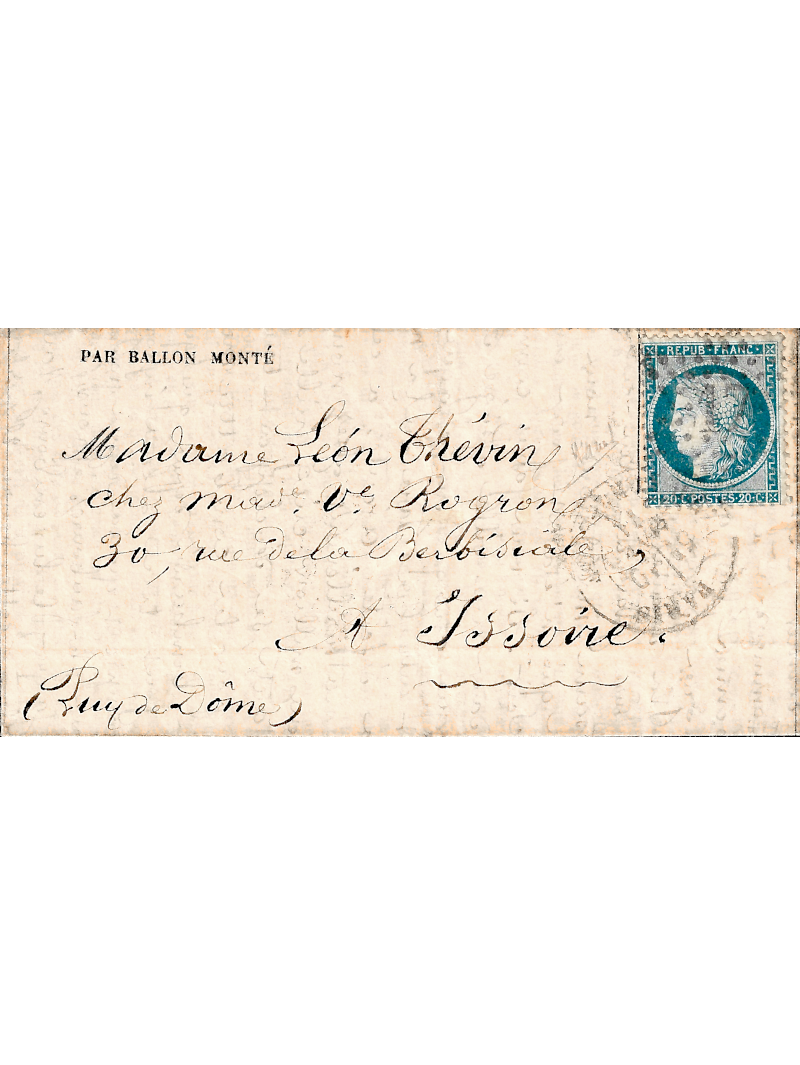 PAR BALLON MONTÉ
REPUB·FRANC·
20·C·POSTES·20·C·
Madame Léon Thévin
chez Made. Ve. Rogron
30, rue de la Berbisiale
A Issoire.
(Puy de Dôme)
PARIS